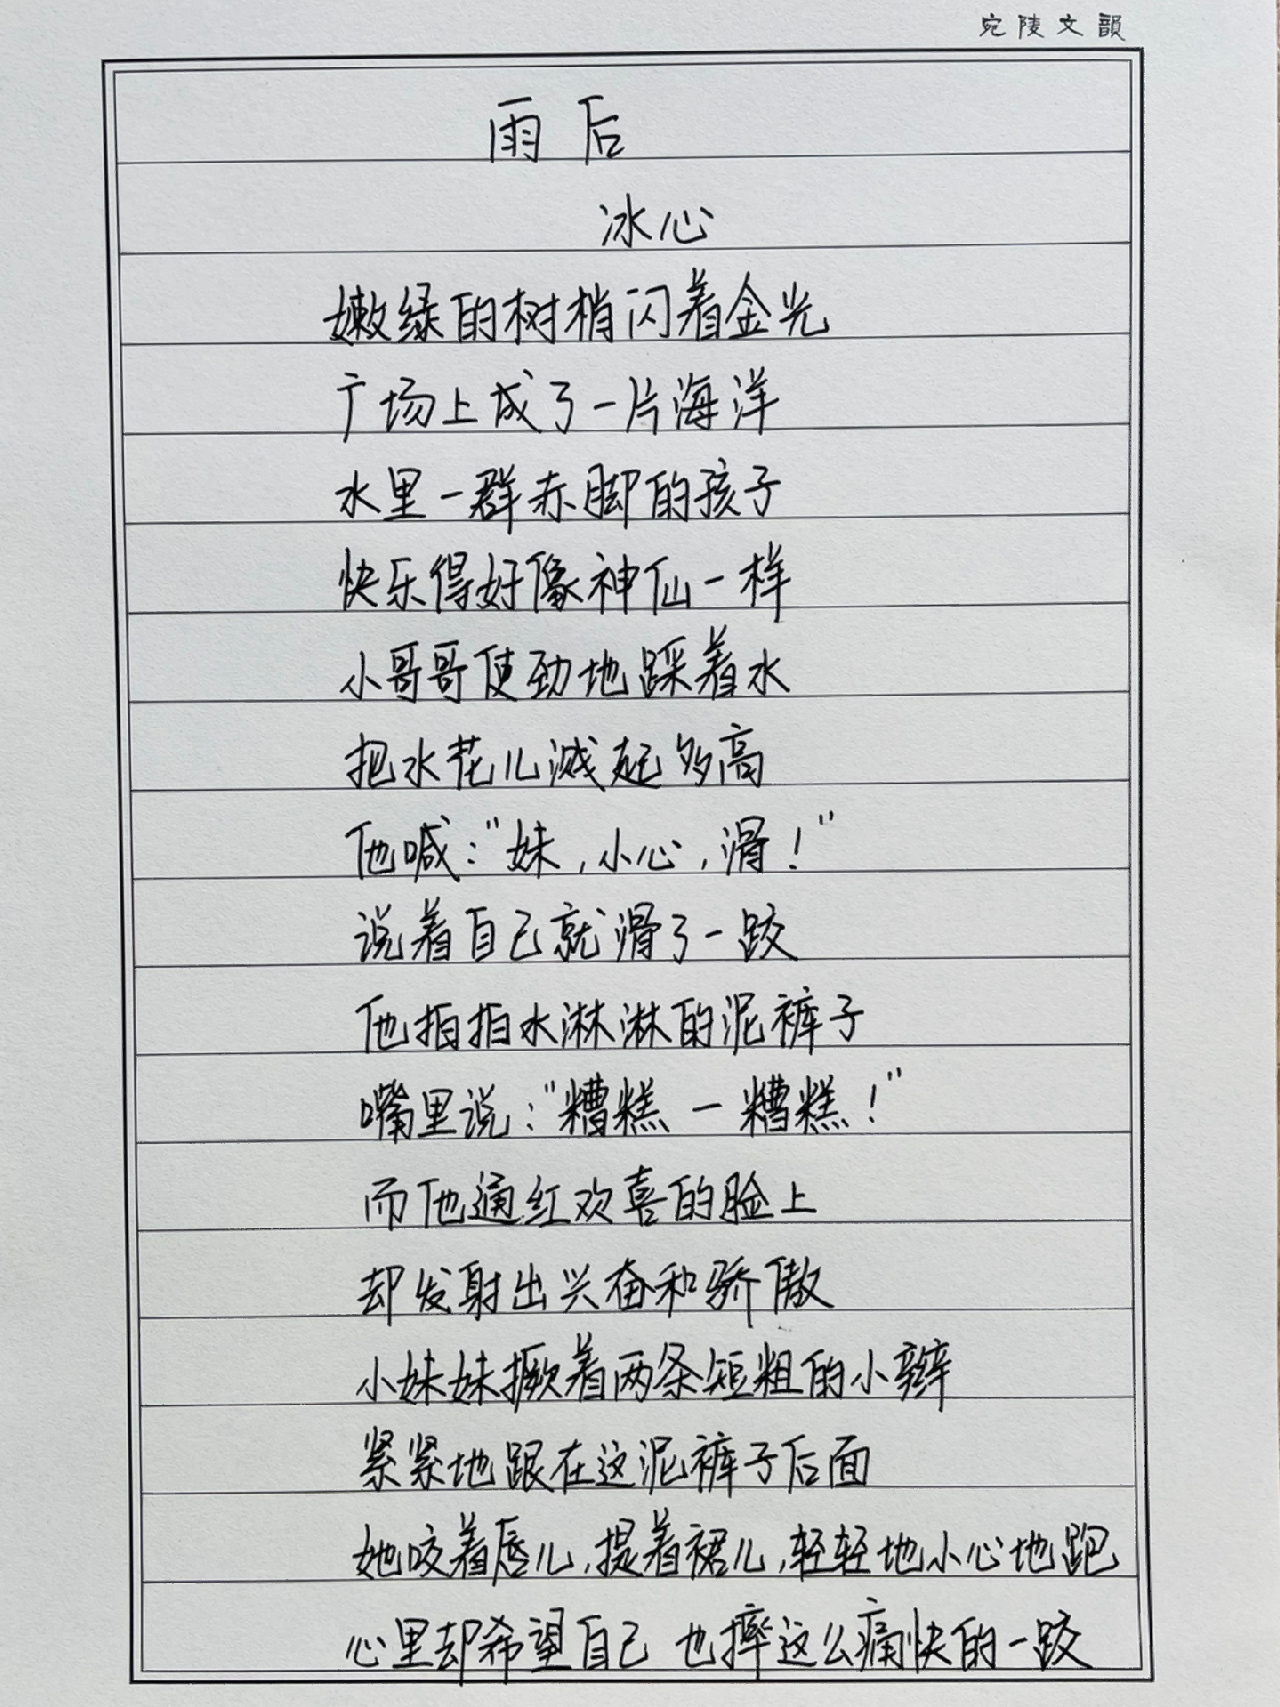 宛陵文韻
雨后
冰心
嫩绿的树梢闪着金光
广场上成了一片海洋
水里一群赤脚的孩子
快乐得好像神仙一样
小哥哥使劲地踩着水
把水花儿溅起多高
他喊:"妹,小心,滑!"
说着自己就滑了一跤
他拍拍水淋淋的泥裤子
嘴里说:"糟糕一糟糕!"
而他通红欢喜的脸上
却发射出兴奋和骄傲
小妹妹撅着两条短粗的小辫
紧紧地跟在这泥裤子后面
她咬着唇儿,提着裙儿,轻轻地小心地跑
心里却希望自己也摔这么痛快的一跤